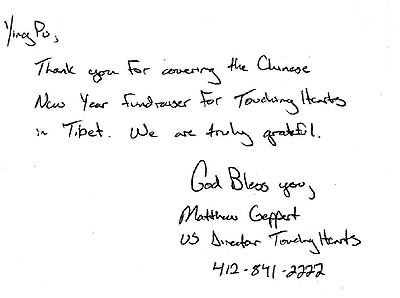 Ying Pu,
Thank you for covering the Chinese
New Year Fundraiser for Touching Hearts
in Tibet. We are truly grateful.
God Bless you,
Matthew Geppert
US Director Touching Hearts
412-841-2222